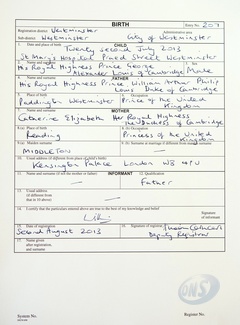 BIRTH
Entry No. 207
Registration district Westminster
Administrative area
Sub-district Westminster
City of Westminster
CHILD
1. Date and place of birth
Twenty second July 2013
St. Mary's Hospital Praed Street Westminster
2. Name and surname
3. Sex
His Royal Highness Prince George
Alexander Louis of Cambridge
Male
FATHER
4. Name and surname
His Royal Highness Prince William Arthur Philip
Louis Duke of Cambridge
5. Place of birth
6. Occupation
Paddington Westminster
Prince of the United
Kingdom
MOTHER
7. Name and surname
Catherine Elizabeth Her Royal Highness
the Duchess of Cambridge
8.(a) Place of birth
8.(b) Occupation
Reading
Princess of the United
Kingdom
9.(a) Maiden surname
9.(b) Surname at marriage if different from maiden surname
MIDDLETON
10. Usual address (if different from place of child's birth)
Kensington Palace London W8 4PU
INFORMANT
11. Name and surname (if not the mother or father)
12. Qualification
Father
13. Usual address
(if different from
that in 10 above)
14. I certify that the particulars entered above are true to the best of my knowledge and belief
Signature
of informant
15. Date of registration
16. Signature of registrar
Second August 2013
Deputy Registrar
17. Name given
after registration,
and surname
ONS
System No.
Registrar No.